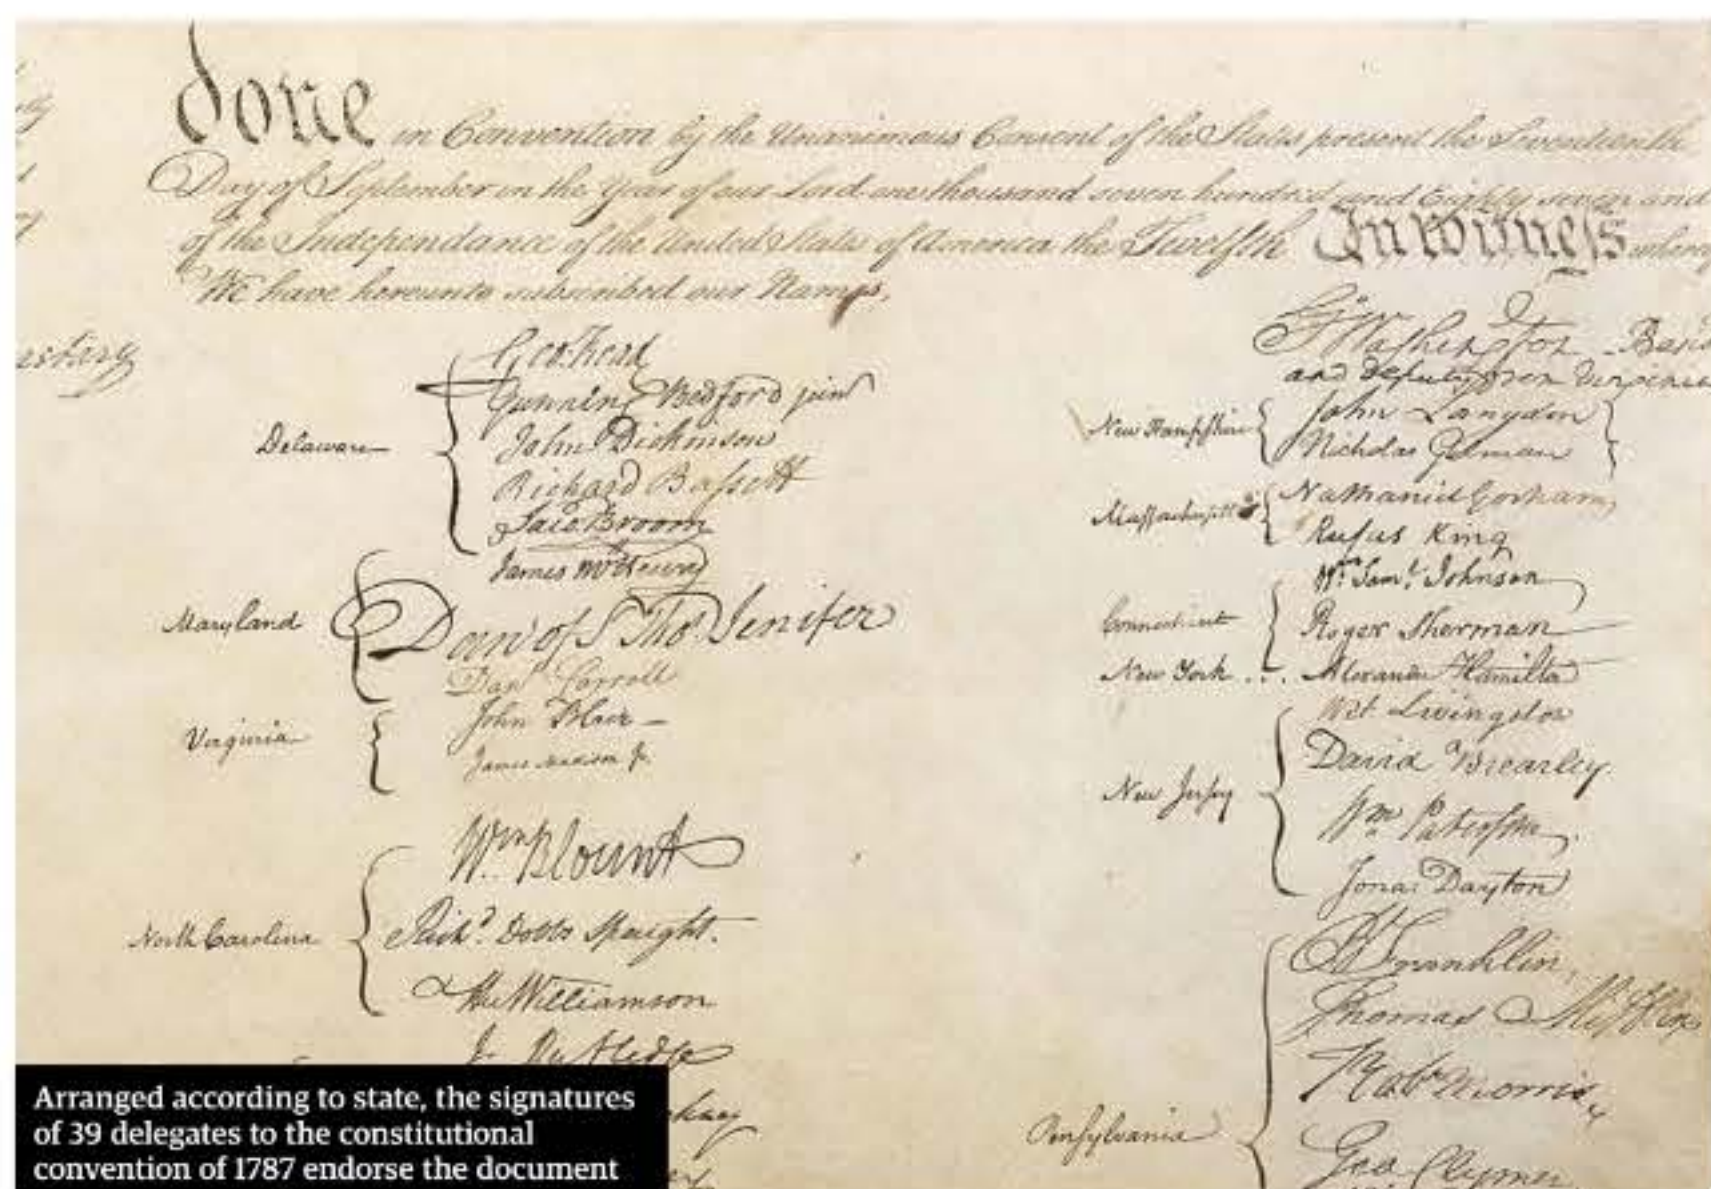 done in Convention by the Unanimous Consent of the States present the Seventeenth
Day of September in the Year of our Lord one thousand seven hundred and Eighty seven and
of the Independance of the United States of America the Twelfth In witness
We have hereunto subscribed our Names,
Delaware
Geo: Read
Gunning Bedford jun
John Dickinson
Richard Bassett
Jaco: Broom
Maryland
James McHenry
Dan of St Thos. Jenifer
Danl Carroll
Virginia
John Blair—
James Madison Jr.
North Carolina
Wm. Blount
Richd. Dobbs Spaight.
Hu Williamson
J. Rutledge
Go. Washington
and deputy from Virginia
New Hampshire
John Langdon
Nicholas Gilman
Massachusetts
Nathaniel Gorham
Rufus King
Connecticut
Wm. Saml. Johnson
Roger Sherman
New York ... Alexander Hamilton
New Jersey
Wil: Livingston
David Brearley.
Wm. Paterson.
Jona: Dayton
Pensylvania
B Franklin
Thomas Mifflin
Robt Morris
Geo. Clymer
Arranged according to state, the signatures
of 39 delegates to the constitutional
convention of 1787 endorse the document